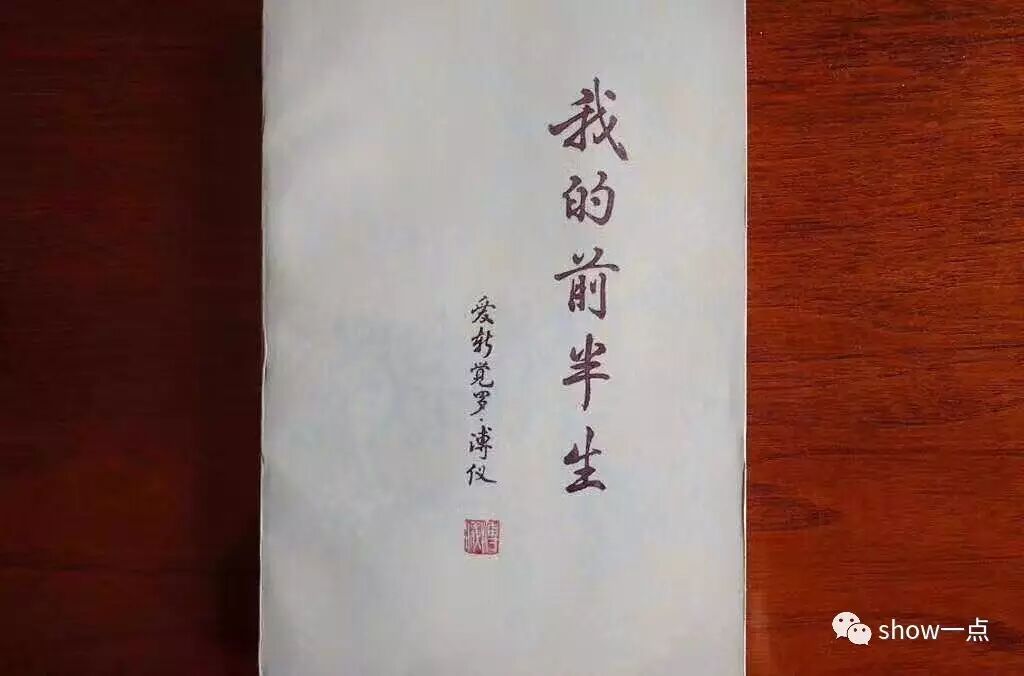 我的前半生
爱新觉罗·溥仪
show一点